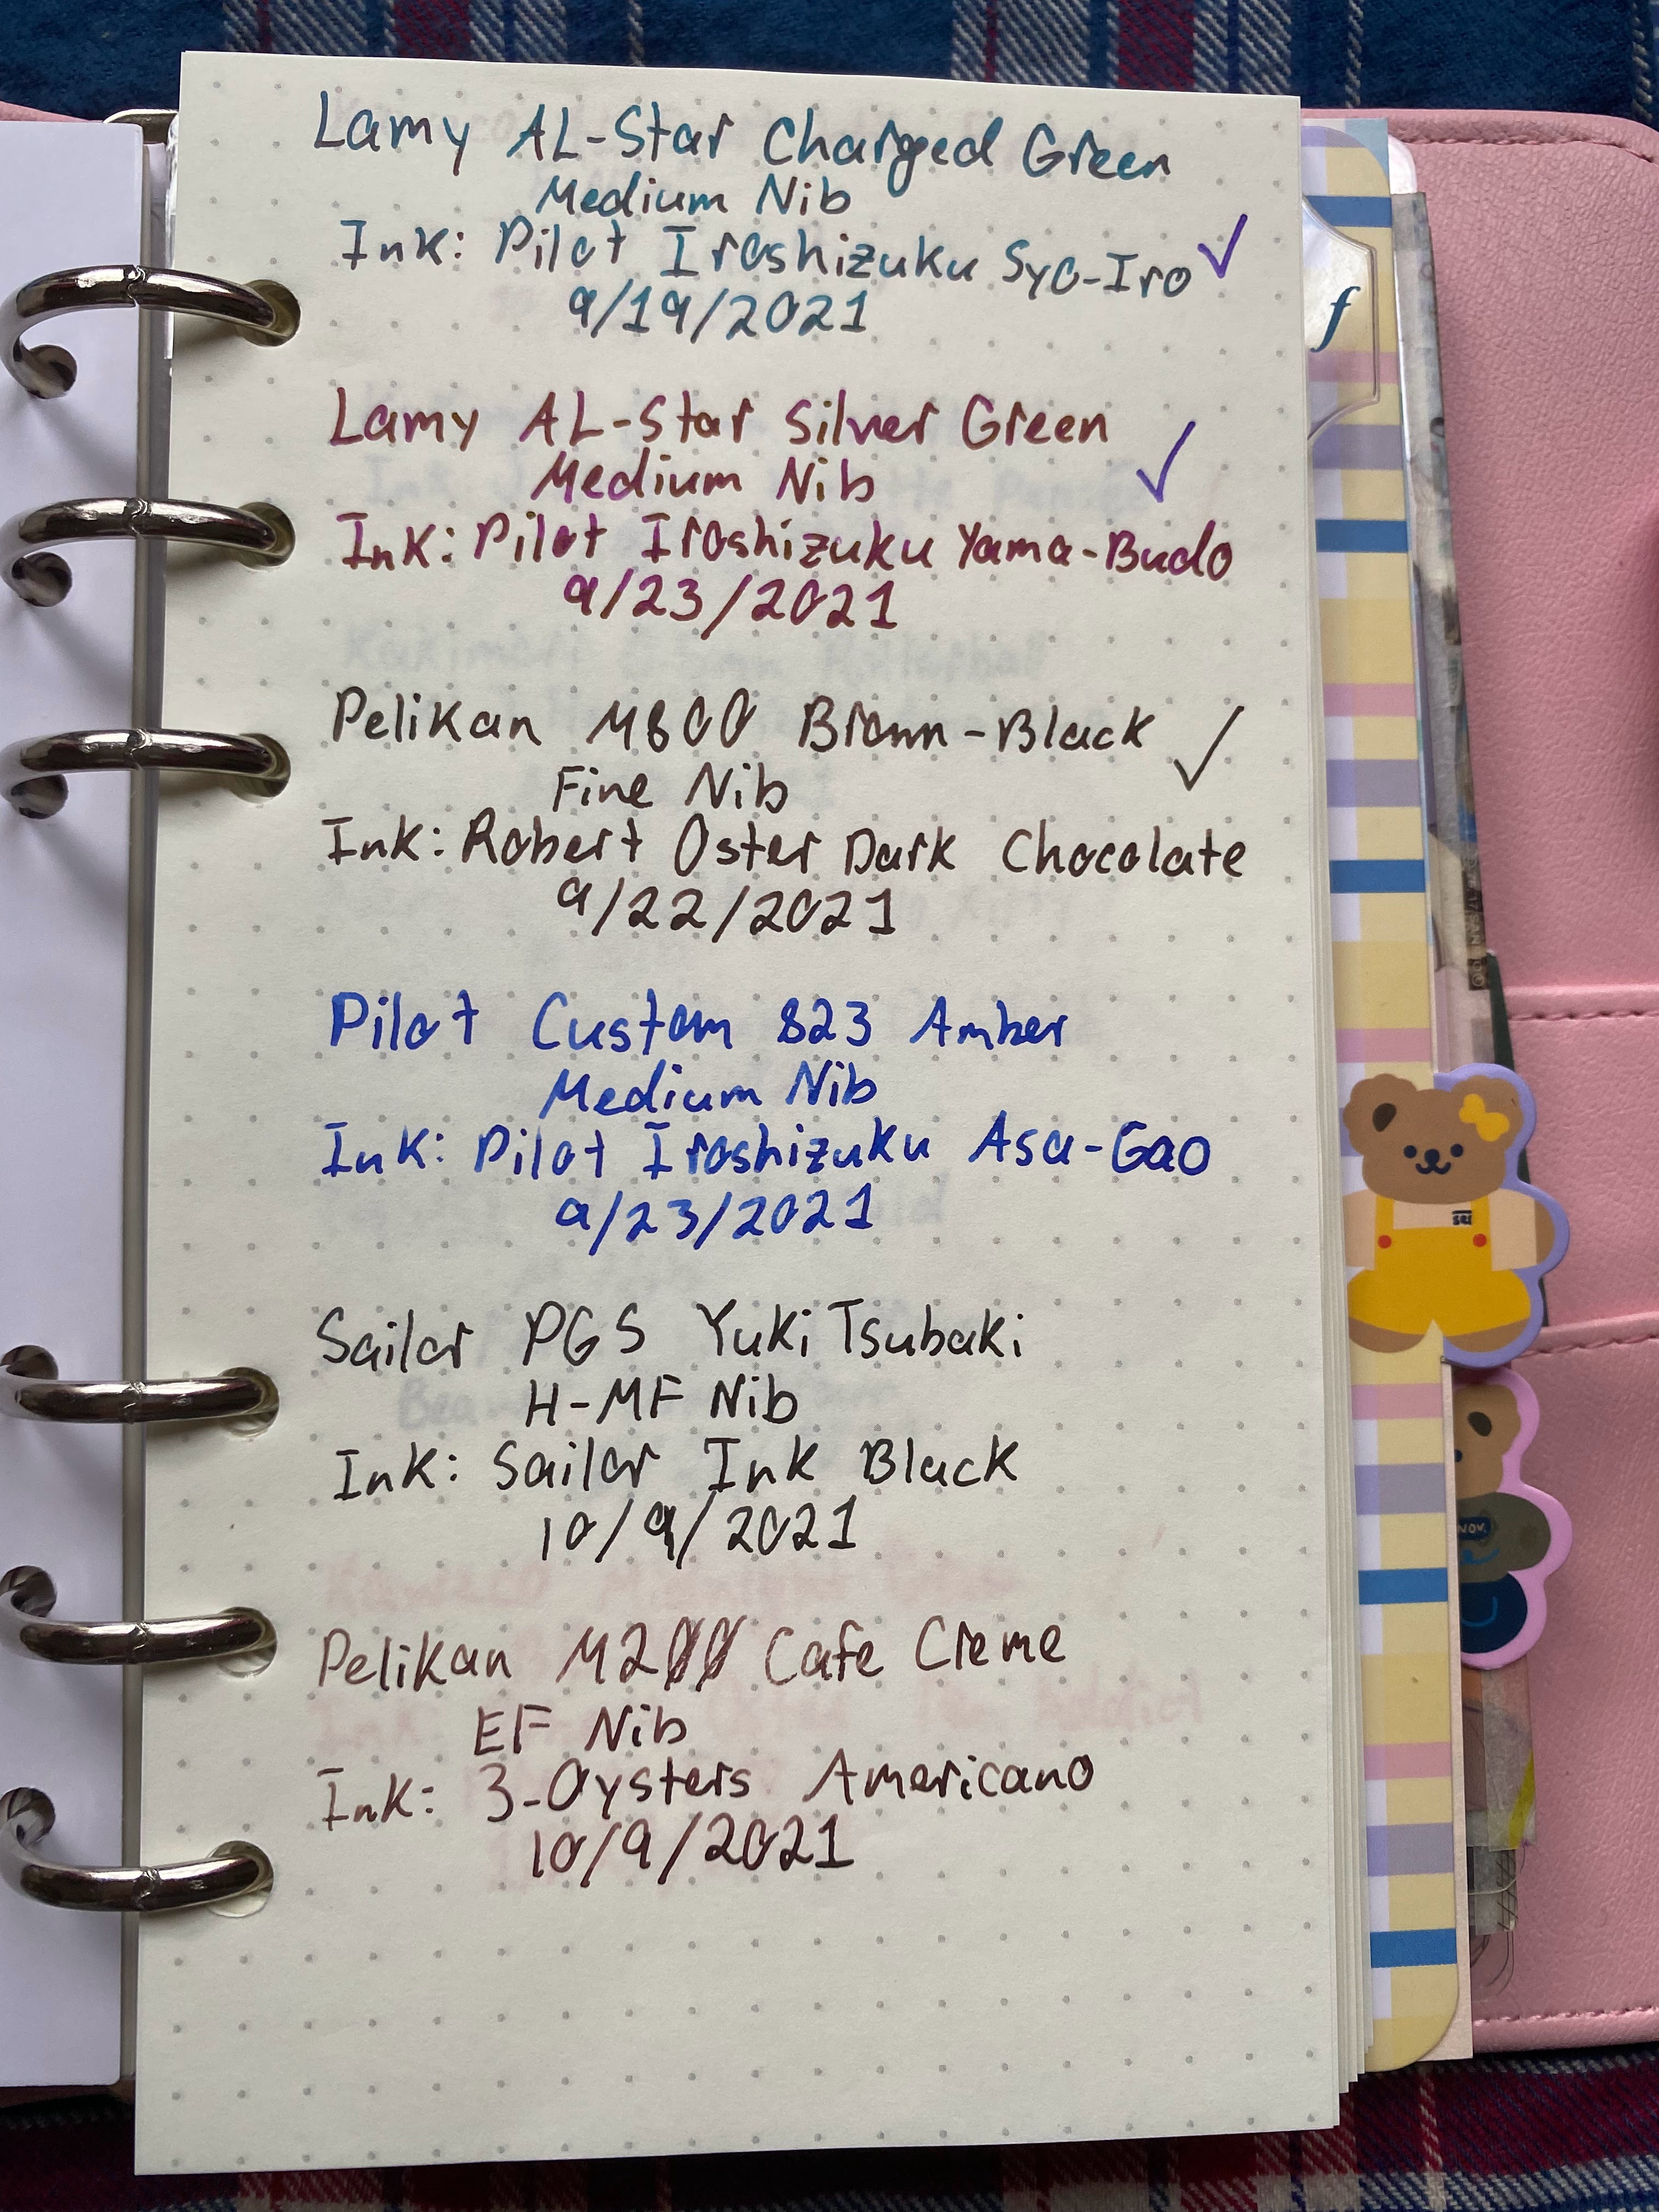 Lamy AL-Star Charged Green
Medium Nib
Ink: Pilot Iroshizuku Syo-Iro ✓
9/19/2021
Lamy AL-Star Silver Green
Medium Nib ✓
Ink: Pilot Iroshizuku Yama-Budo
9/23/2021
Pelikan M800 Brown-Black ✓
Fine Nib
Ink: Robert Oster Dark Chocolate
9/22/2021
Pilot Custom 823 Amber
Medium Nib
Ink: Pilot Iroshizuku Asa-Gao
9/23/2021
Sailor PGS Yuki Tsubaki
H-MF Nib
Ink: Sailor Ink Black
10/9/2021
Pelikan M200 Cafe Creme
EF Nib
Ink: 3-Oysters Americano
10/9/2021
f
NOV.